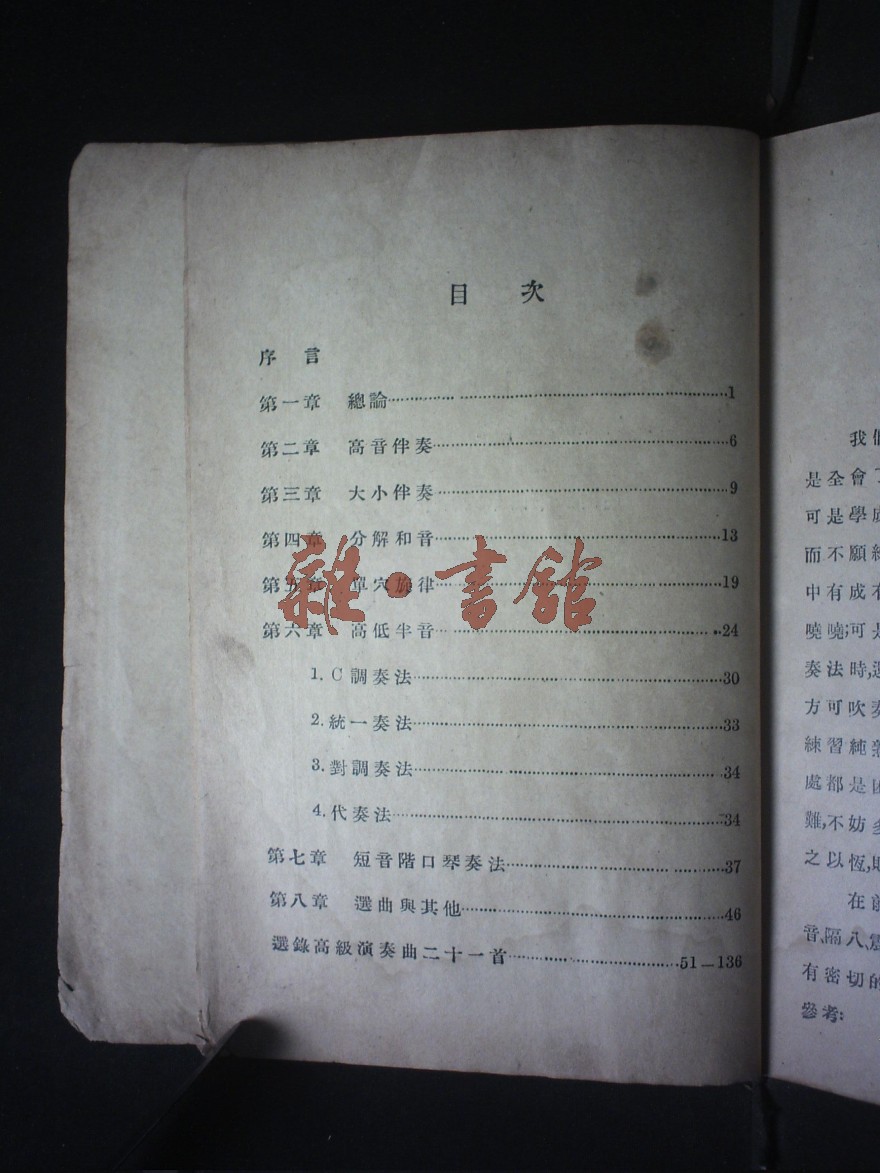 目 次
序 言
第一章 總論………1
第二章 高音伴奏………6
第三章 大小伴奏………9
第四章 分解和音………13
第五章 單穴旋律………19
第六章 高低半音………24
1. C調奏法………30
2. 統一奏法………33
3. 對調奏法………34
4. 代奏法………34
第七章 短音階口琴奏法………37
第八章 選曲與其他………46
選錄高級演奏曲二十一首………51—136
雜·書館
我們
是全會
可是學
而不願
中有成
嘵嘵;可是
奏法時,
方可吹奏
練習純熟
處都是困
難,不妨多
之以恆,
在前
音、隔八、
有密切的
參考: